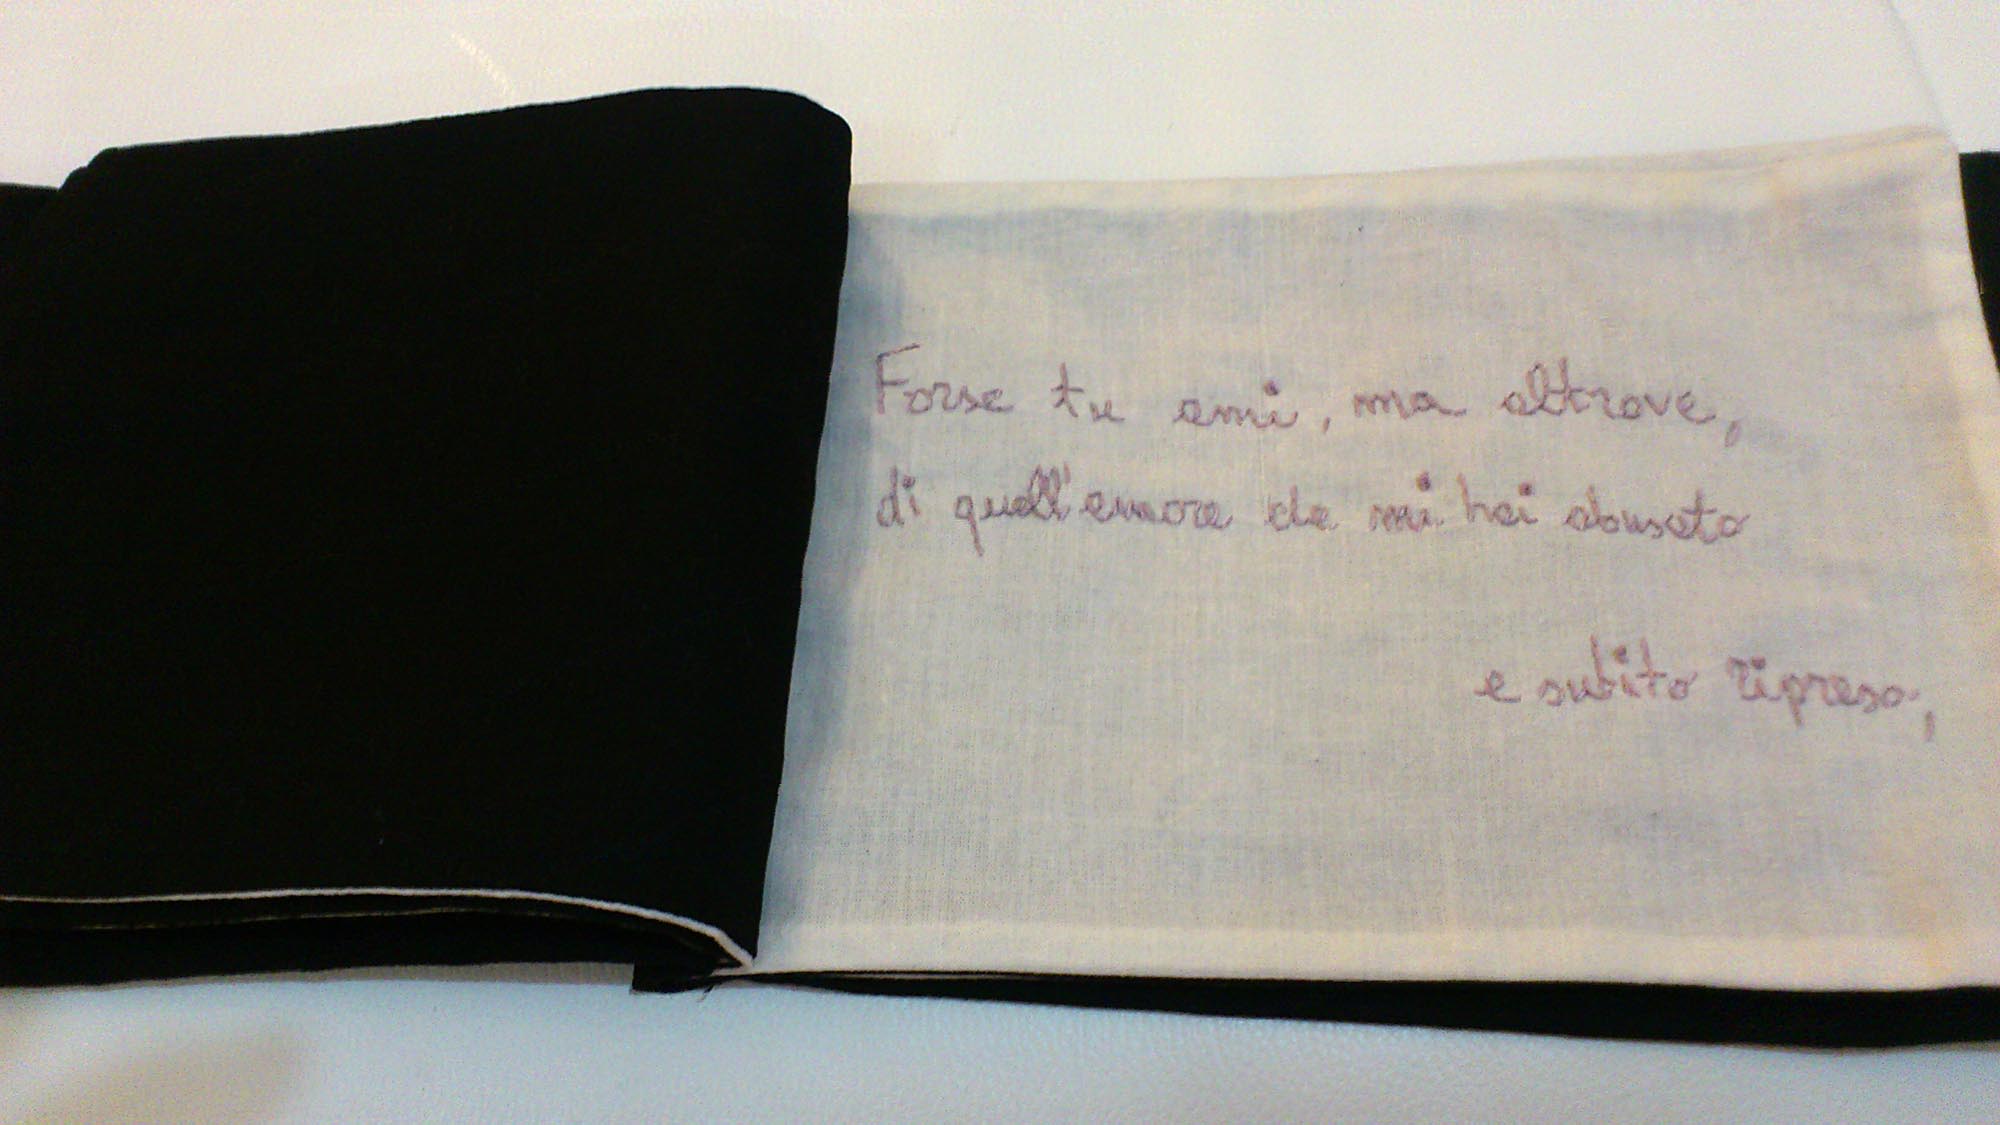 Forse tu ami, ma altrove,
di quell'amore che mi hai abusato
e subito ripreso,